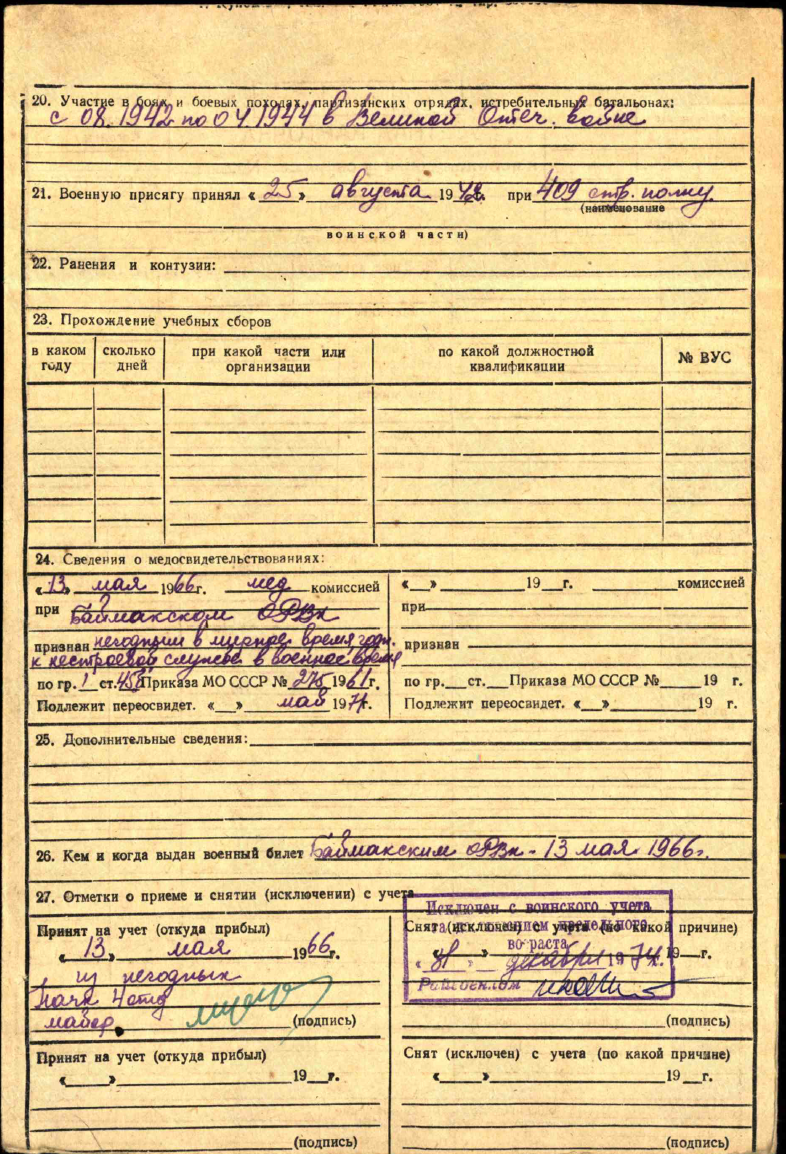 20. Участие в боях и боевых походах, партизанских отрядах, истребительных батальонах:
с 08.1942 по 04.1944 в Великой Отеч. войне
21. Военную присягу принял « 25 » августа 1942г. при 409 стр. полку
(наименование
воинской части)
22. Ранения и контузии:
23. Прохождение учебных сборов
в каком году
сколько дней
при какой части или организации
по какой должностной квалификации
№ ВУС
24. Сведения о медосвидетельствованиях:
« 13 » мая 1966г. мед комиссией
при Баймакском ОРВК
признан негодным в мирное время, годн.
к нестроевой службе в военное время
по гр. 1 ст. Приказа МО СССР № 275 1961г.
Подлежит переосвидет. « » май 1971г.
« » 19 г. комиссией
при
признан
по гр. ст. Приказа МО СССР № 19 г.
Подлежит переосвидет. « » 19 г.
25. Дополнительные сведения:
26. Кем и когда выдан военный билет Баймакским ОРВК - 13 мая 1966г.
27. Отметки о приеме и снятии (исключении) с учета
Принят на учет (откуда прибыл)
« 13 » мая 1966г.
из негодных
Нач 4 отд
майор
(подпись)
Снят (исключен) с учета (по какой причине)
« » 19 г.
Исключен с воинского учета
предельного
возраста
« 31 » декабря 1974г.
Райвоенком
(подпись)
Принят на учет (откуда прибыл)
« » 19 г.
(подпись)
Снят (исключен) с учета (по какой причине)
« » 19 г.
(подпись)